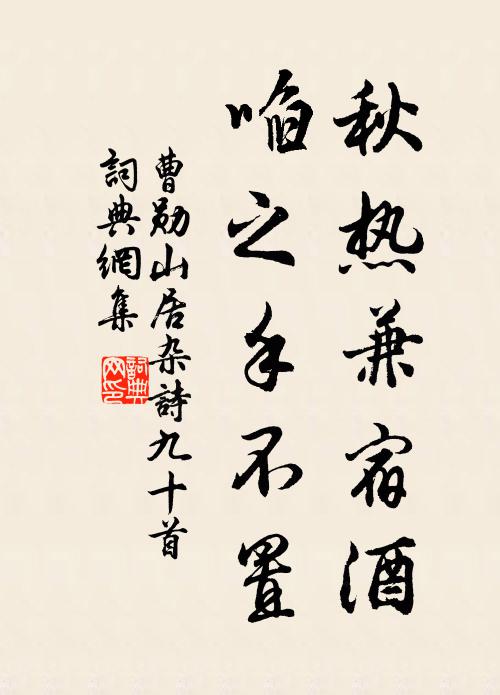 秋热兼宿酒
啗之手不置
曹勋山居杂詩九十首
詞典網集
詞典网印